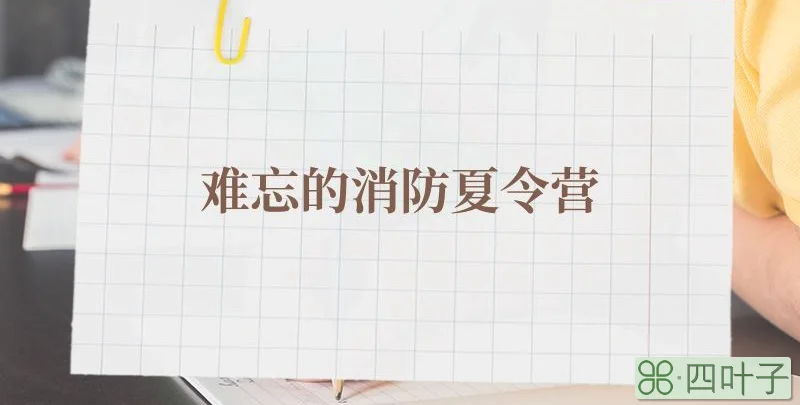 难忘的消防夏令营
四叶子